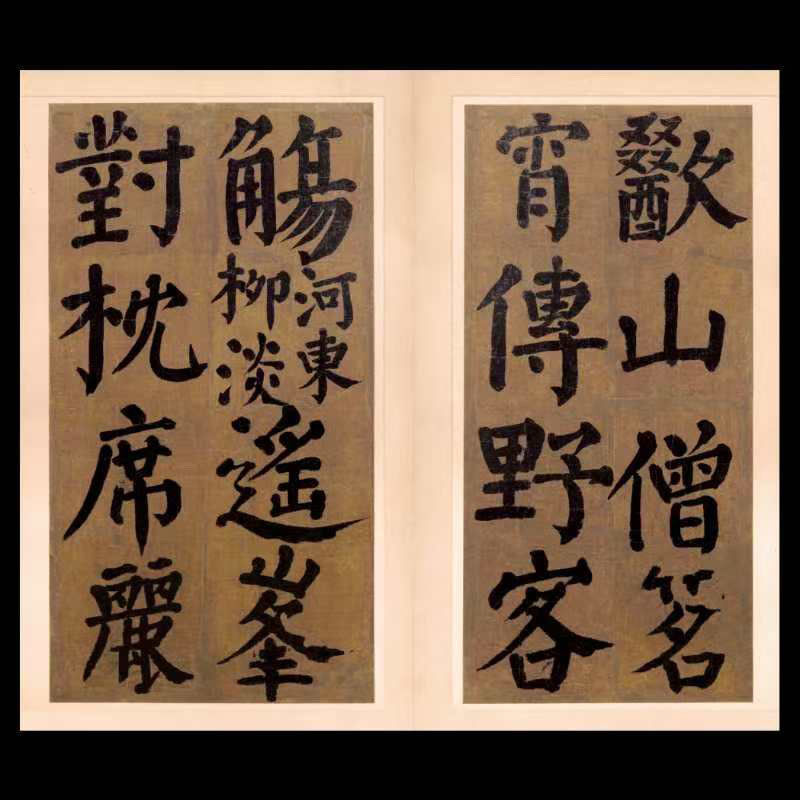 歠山僧茗
宵傳野客
觴
河東
柳淡
遥峯
對枕席麗